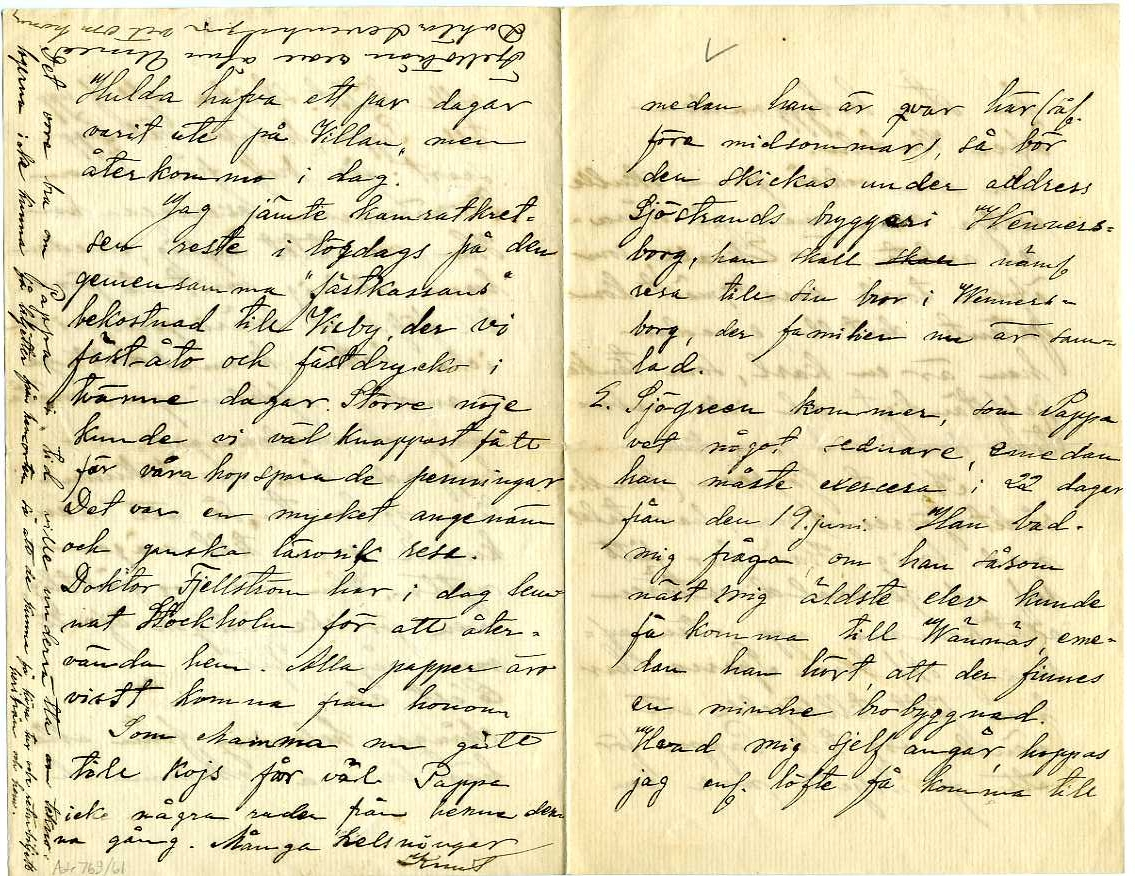 medan han är qvar här (åf.
före midsommar), så bör
den skickas under address
Sjöstrands byggeri Wenners-
borg, han skall skall nämf
resa till sin bror i Wenners-
borg, der familien nu är sam-
lad.
E. Sjögreen kommer, som Pappa
vet något senare, emedan
han måste exercera i 22 dagar
från den 19. juni. Han bad
mig fråga, om han såsom
näst mig äldste elev kunde
få komma till Wännäs, eme-
dan han hört, att der finnes
en mindre brobyggnad.
Hvad mig sjelf angår, hoppas
jag enl. löfte få komma till
Hulda hafva ett par dagar
varit ute på "Villan", men
återkommo i dag.
Jag jämte kamratkret-
sen reste i torsdags på den
gemensamma "fästkassans"
bekostnad till Visby, der vi
fäst-åto och fästdrycko i
tvänne dagar. Större nöje
kunde vi väl knappast fått
för våra hopsparade penningar
Det var en mycket angenäm
och ganska lärorik resa.
Doktor Fjellström har i dag lem-
nat Stockholm för att åter-
vända hem. Alla papper äro
visst komna från honom
Som Mamma nu gått
till kojs får väl Pappa
icke några rader från henne den-
na gång. Många helsningar
Knut
Det vore bra om Pappa i tid ville underrätta
byerna icke kunna få biljetter från hemorten så att de kunna på
härifrån och hem.
Fjellström
Adr 769/61